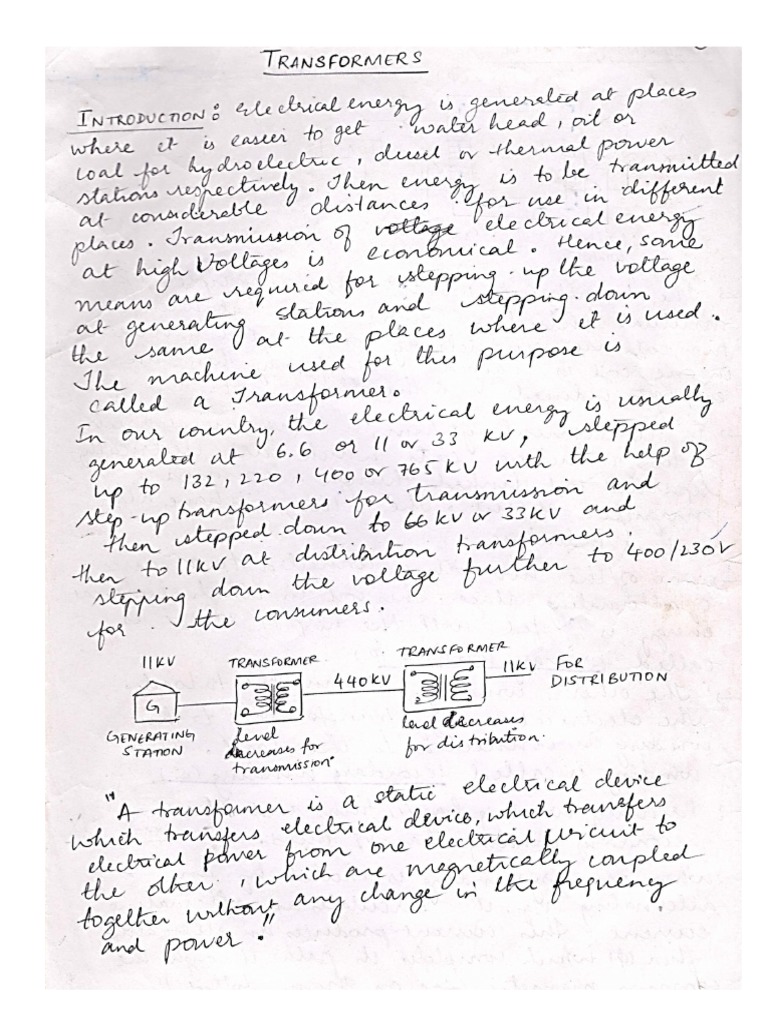 TRANSFORMERS
INTRODUCTION: Electrical energy is generated at places
where it is easier to get water head, oil or
coal for hydroelectric, diesel or thermal power
stations respectively. Then energy is to be transmitted
at considerable distances for use in different
places. Transmission of voltage electrical energy
at high Voltages is economical. Hence, some
means are required for stepping-up the voltage
at generating stations and stepping-down
the same at the places where it is used.
The machine used for this purpose is
called a Transformer.
In our country, the electrical energy is usually
generated at 6.6 or 11 or 33 KV, stepped
up to 132, 220, 400 or 765 KV with the help of
step-up transformers for transmission and
then stepped down to 66 KV or 33KV and
then to 11KV at distribution transformers.
stepping down the voltage further to 400/230V
for the consumers.
11KV TRANSFORMER 440KV TRANSFORMER 11KV FOR DISTRIBUTION
G
GENERATING STATION
Level decreases for transmission.
level decreases for distribution.
"A transformer is a static electrical device
which transfers electrical device, which transfers
electrical power from one electrical circuit to
the other, which are magnetically coupled
together without any change in the frequency
and power."